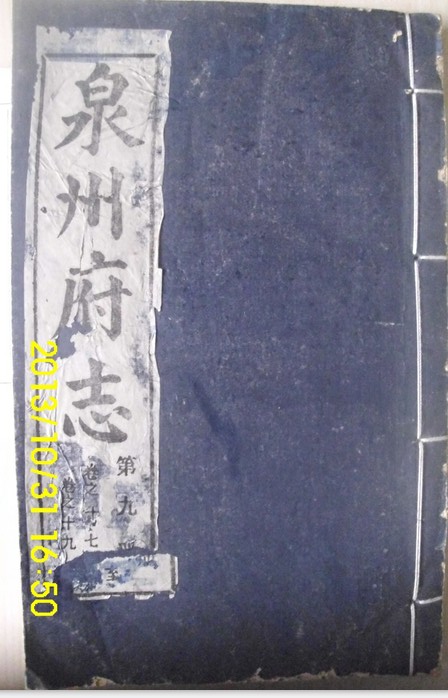 泉州府志
第九
卷之十七
卷之十九
2013/10/31 16:50